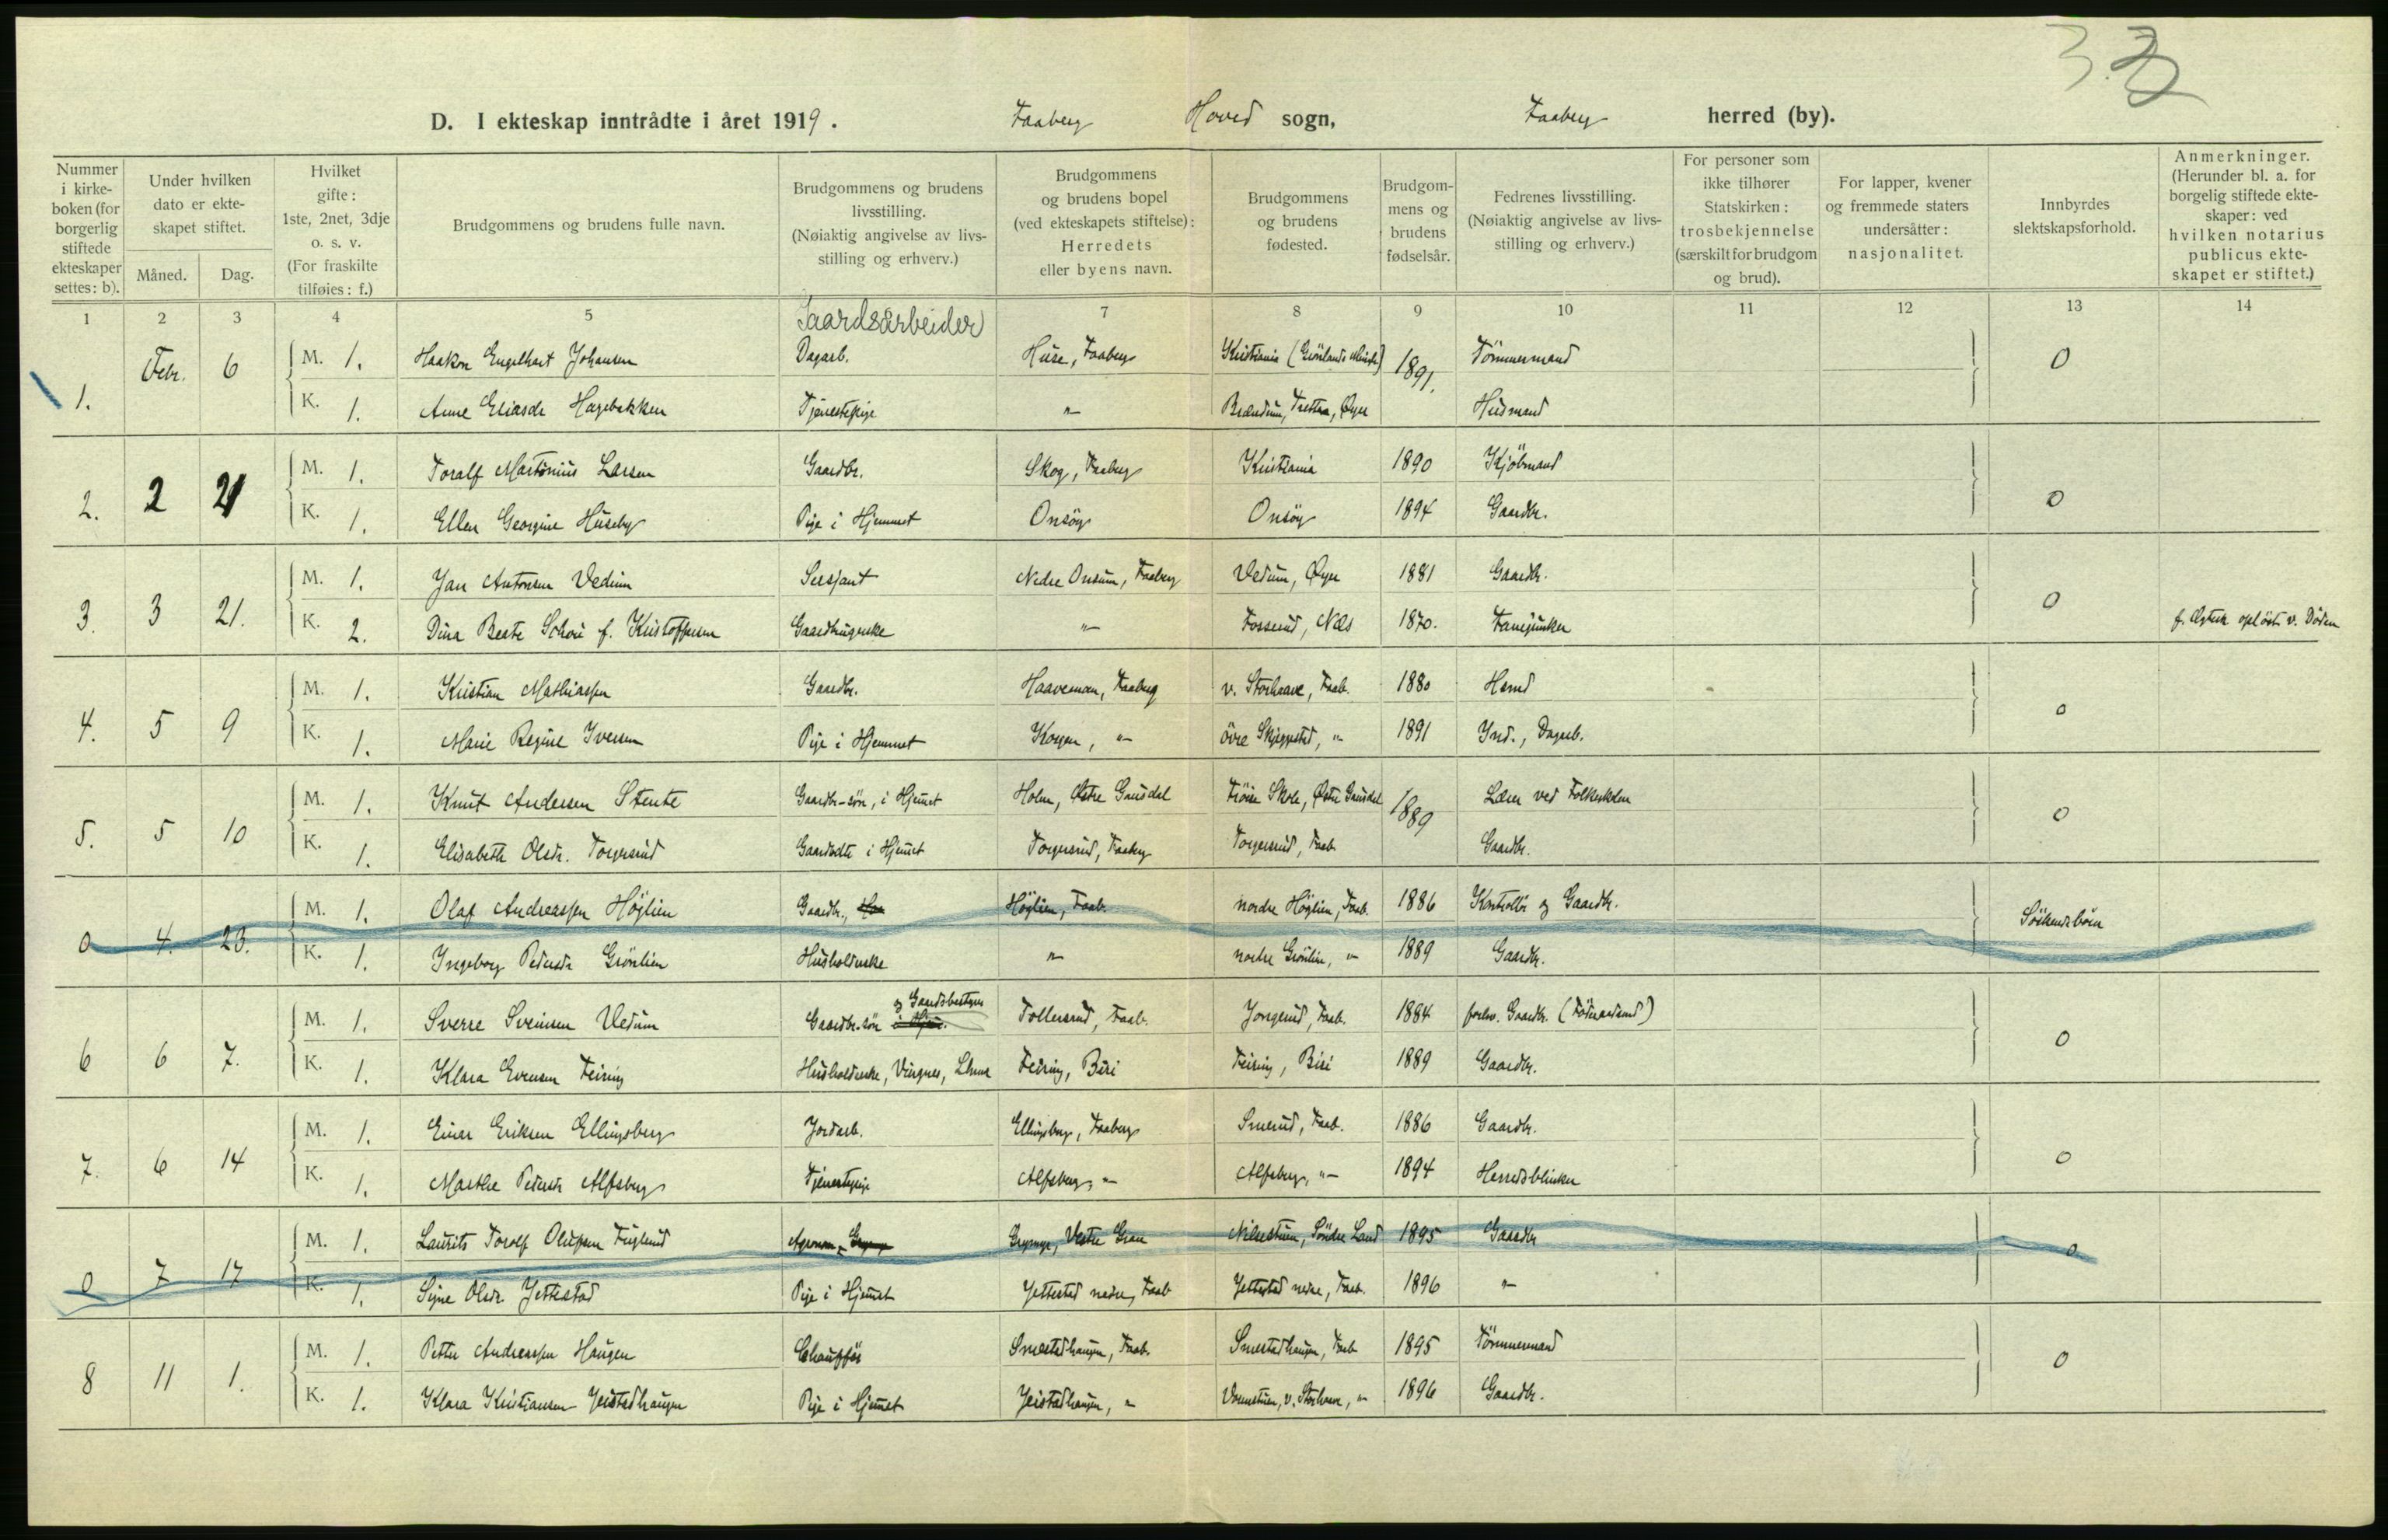 3.
D. I ekteskap inntrådte i året 1919. Faaberg Hoved sogn, Faaberg herred (by).
Nummer i kirkeboken (for borgerlig stiftede ekteskaper settes: b).
Under hvilken dato er ekteskapet stiftet.
Måned. Dag.
Hvilket gifte: 1ste, 2net, 3dje o. s. v. (For fraskilte tilføies: f.)
Brudgommens og brudens fulle navn.
Brudgommens og brudens livsstilling. (Nøiaktig angivelse av livsstilling og erhverv.)
Brudgommens og brudens bopel (ved ekteskapets stiftelse): Herredets eller byens navn.
Brudgommens og brudens fødested.
Brudgommens og brudens fødselsår.
Fedrenes livsstilling. (Nøiaktig angivelse av livsstilling og erhverv.)
For personer som ikke tilhører Statskirken: trosbekjennelse (særskilt for brudgom og brud).
For lapper, kvener og fremmede staters undersåtter: nasjonalitet.
Innbyrdes slektskapsforhold.
Anmerkninger. (Herunder bl. a. for borgelig stiftede ekteskaper: ved hvilken notarius publicus ekteskapet er stiftet.)
1 2 3 4 5 7 8 9 10 11 12 13 14
Gaardsarbeider
1. Febr. 6 M. 1. Haakon Engelhart Johansen Dagarb. Huse, Faaberg Kristiania (Grönlands 1891. Tömmermand 0
K. 1. Anne Eliasdr Hagebakken Tjenestepige " Brændum, Tretten, Øyer Husmand
2. 2 21 M. 1. Toralf Martinius Larsen Gaardbr. Skog, Faaberg Kristiania 1890 Kjöbmand 0
K. 1. Ellen Georgine Huseby Pige i Hjemmet Onsöy Onsöy 1894 Gaardbr.
3. 3 21. M. 1. Jan Antonsen Vedum Sersjant Nedre Onsum, Faaberg Vedum, Øyer 1881 Gaardbr. 0
K. 2. Dina Beate f. Kristoffersen Gaardbrugerske " Fosserud, Næs 1870. Fanejunker f. Ægtesk. oplöst v. Döden
4. 5 9 M. 1. Kristian Mathiassen Gaardbr. Haavemoen, Faaberg v. Storhaave, Faab. 1880 Hsmd 0
K. 1. Marie Regine Iversen Pige i Hjemmet Korgen, " övre Skjeggestad, " 1891 Ind., Dagarb.
5. 5 10 M. 1. Knut Andersen Stente Gaardbr-sön, i Hjemet Holen, Østre Gausdal Fröise Skole, Østre Gausdal 1889 Lærer ved Folkeskolen 0
K. 1. Elisabeth Olsdr. Torgersrud Gaardbdtr i Hjemet Torgersrud, Faaberg Torgersrud, Faab. Gaardbr.
0 4. 23. M. 1. Olaf Andreassen Höjlien Gaardbr., Höglien, Faab. nordre Höglien, Faab. 1886 Kontrollör og Gaardbr. Söskendebörn
K. 1. Ingeborg Pedersdr Grönlien Husholderske " nordre Grönlien, " 1889 Gaardbr.
6 6 7. M. 1. Sverre Sveinsen Vedum Gaardbr-sön i Hjem. og Gaardsbestyrer Tollersrud, Faab. Jorgerud, Faab. 1884 forhv. Gaardbr. (Föderaadsmd) 0
K. 1. Klara Evensen Feiring Husholderske, Vingnes, Lhmr Feiring, Biri Feiring, Biri 1889 Gaardbr.
7. 6 14 M. 1. Einar Eriksen Ellingsberg Jordarb. Ellingsberg, Faaberg Smerud, Faab. 1886 Gaardbr. 0
K. 1. Marthe Pedersdr Alfsberg Tjenestepige Alfsberg, " Alfsberg, " 1894 Herredsblinker
0 7 17 M. 1. Laurits Toralf Olufsen Fuglerud Agronom, Grymyr Grymyr, Vestre Gran Nilsestuen, Söndre Land 1895 Gaardbr 0
K. 1. Signe Olsdr. Jettestad Pige i Hjemet Jettestad nedre, Faab Jettestad nedre, Faab. 1896 "
8 11 1. M. 1. Petter Andreassen Haugen Chaufför Smestadhaugen, Faab. Smestadhaugen, Faab 1895 Tömmermand 0
K. 1. Klara Kristiansen Jeistadhaugen Pige i Hjemet Jeistadhaugen, " v. Storhaave, " 1896 Gaardbr.